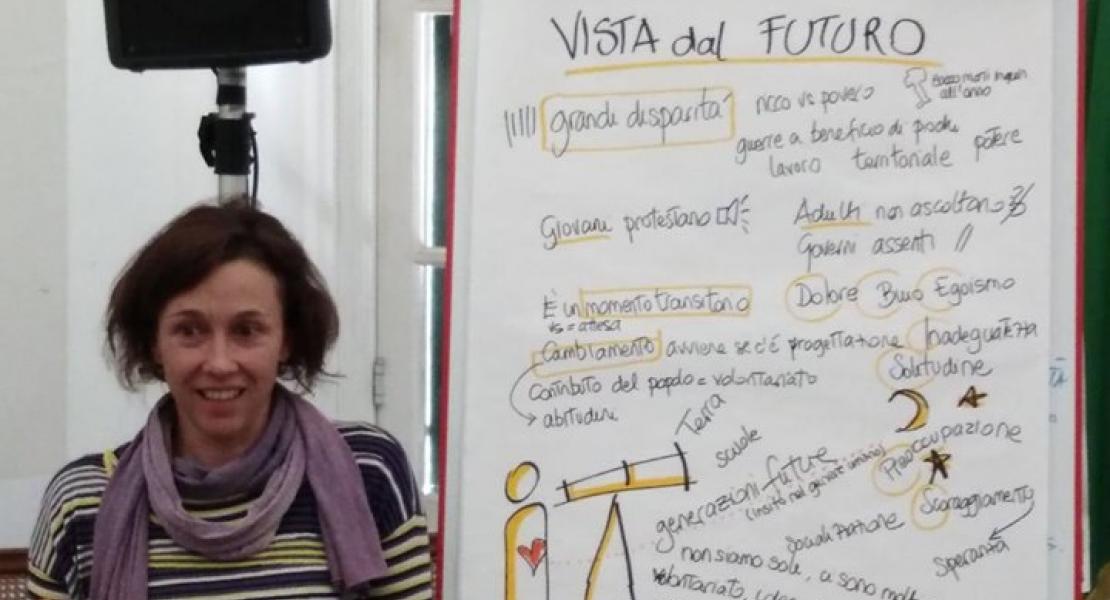 VISTA dal FUTURO
grande disparità
ricco vs povero
all'anno
guerre a beneficio di pochi
lavoro territoriale potere
Giovani protestano
Adulti non ascoltano
Governi assenti
È un momento transitorio
vs = attesa
Dolore Buio Egoismo
Cambiamento avviene se c'è progettazione
Inadeguatezza
Solitudine
contributo del popolo = volontariato
→ abitudini
Terra
scuole
generazioni future
(insito nel genere umano)
Preoccupazione
Scoraggiamento
Socializzazione
Speranza
non siamo sole, ci sono molte
volontariato,